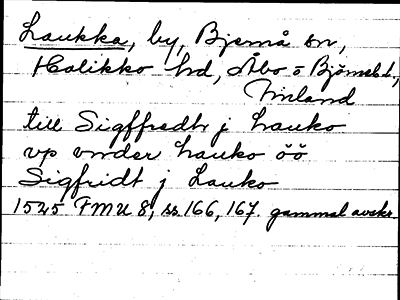 Laukka, by, Bjernå sn,
Halikko hd, Åbo o Björneb. l.,
Finland
till Sigffredh j hauko
vp vnder hauko öö
Sigfridt j Lauko
1545 FMU 8, ss. 166, 167. gammal avskr.